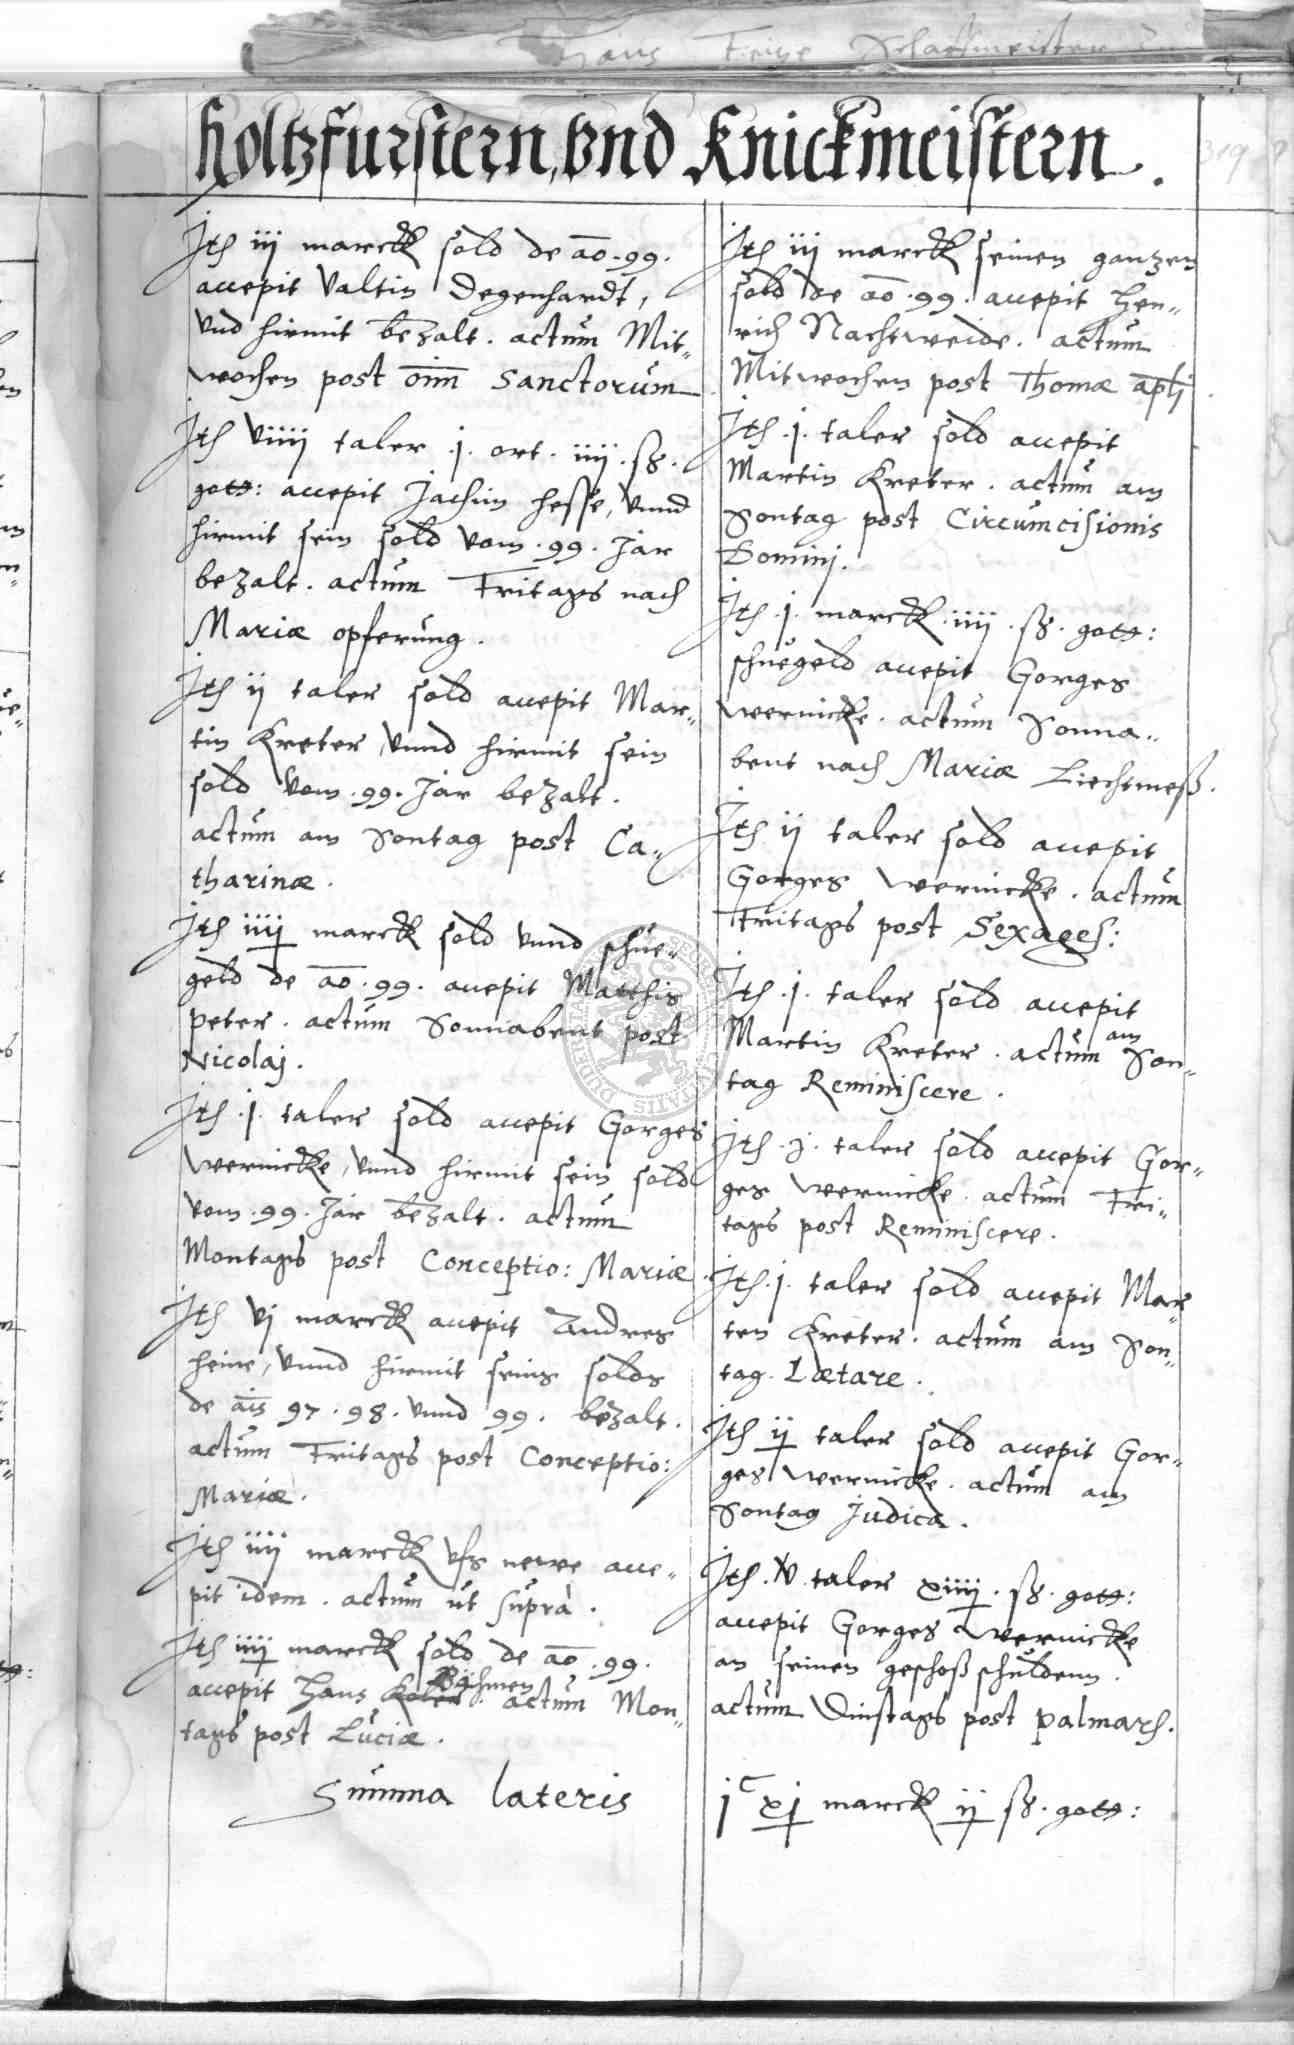 Holtzfurstern, vnd Knickmeistern.
Jtē iij marck sold de aō .99.
accepit Valtin Degenhardt,
vnd hirmit bezalt. actum Mit„
wochen post oīm Sanctorum
Jtē viiij taler .j. ort. iiij. ß.
gott: accepit Jachim Hesse, vnnd
hirmit sein sold vom .99. Jar
bezalt. actum Fritags nach
Mariæ opferung.
Jtē ij taler sold accepit Mar„
tin Kreter, vnnd hirmit sein
sold vom .99. Jar bezalt.
actum am Sontag post Ca„
tharinæ.
Jtē iiij marck sold vnnd schue„
geld de aō .99. accepit Matthis
Peter. actum Sonnabent post
Nicolaj.
Jtē .j. taler sold accepit Gorges
Wernicke, vnnd hirmit sein sold
vom .99. Jar bezalt. actum
Montags post Conceptio: Mariæ.
Jtē vj marck accepit Andres
Heine, vnnd hirmit seins solds
de aīs 97. 98. vnnd 99. bezalt.
actum Fritags post Conceptio:
Mariæ.
Jtē iiij marck vfs newe acce„
pit idem. actum ut supra.
Jtē iiij marck sold de aō .99.
Böhmen
accepit Hans actum Mon„
tags post Luciæ.
Summa lateris
Jtē iij marck seinen gantzen
sold de aō .99. accepit Hen„
rich Nachtweide. actum
Mitwochen post Thomæ apli.
Jtē .j. taler sold accepit
Martin Kreter. actum am
Sontag post Circumcisionis
Dominj.
Jtē .j. marck .iiij. ß. gott:
schuegeld accepit Gorges
Wernicke. actum Sonna„
bent nach Mariæ Liechtmeß.
Jtē ij taler sold accepit
Gorges Wernicke. actum
Fritags post Sexages:
Jtē .j. taler sold accepit
Martin Kreter. actum am Son„
tag Reminiscere.
Jtē .j. taler sold accepit Gor„
ges Wernicke. actum Fri„
tags post Reminiscere.
Jtē .j. taler sold accepit Mar„
ten Kreter. actum am Son„
tag Lætare.
Jtē ij taler sold accepit Gor„
ges Wernicke. actum am
Sontag Judica.
Jtē .v. taler xiiij. ß. gott:
accepit Gorges Wernicke
an seinen geschoß schuldenn.
actum Dinstags post Palmarū.
jᶜ xj marck ij ß. gott: